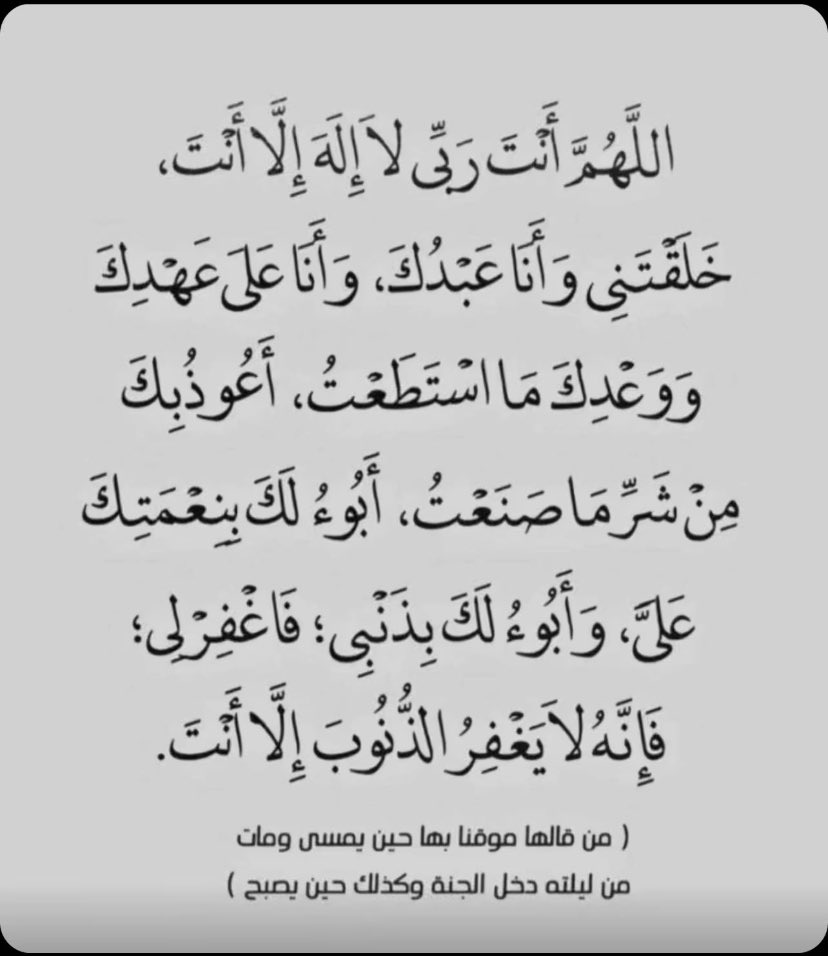 اللَّهُمَّ أَنْتَ رَبِّي لاَ إِلَهَ إِلَّا أَنْتَ،
خَلَقْتَنِي وَأَنَا عَبْدُكَ، وَأَنَا عَلَى عَهْدِكَ
وَوَعْدِكَ مَا اسْتَطَعْتُ، أَعُوذُ بِكَ
مِنْ شَرِّ مَا صَنَعْتُ، أَبُوءُ لَكَ بِنِعْمَتِكَ
عَلَيَّ، وَأَبُوءُ لَكَ بِذَنْبِي؛ فَاغْفِرْ لِي؛
فَإِنَّهُ لاَ يَغْفِرُ الذُّنُوبَ إِلَّا أَنْتَ.
( من قالها موقنا بها حين يمسى ومات
من ليلته دخل الجنة وكذلك حين يصبح )